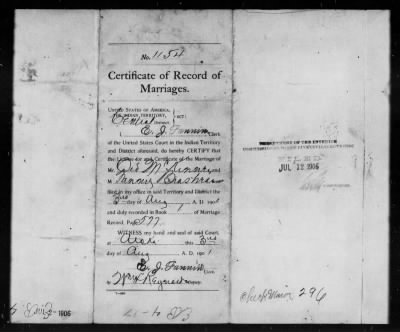 No. 1154
Certificate of Record of
Marriages.
UNITED STATES OF AMERICA,
THE INDIAN TERRITORY, SCT:
Central District.
I, E. J. Fannin Clerk
of the United States Court in the Indian Territory
and District aforesaid, do hereby CERTIFY that
the License for and Certificate of the Marriage of
Mr. and
M
filed in my office in said Territory and District the
3rd day of Aug A. D. 1901
and duly recorded in Book of Marriage
Record, Page 577
WITNESS my hand and seal of said Court,
at Atoka this 3rd
day of Aug A. D. 1901
E. J. Fannin
Clerk.
By Deputy.
DEPARTMENT OF THE INTERIOR
FILED
JUL 12 1906
296
1906